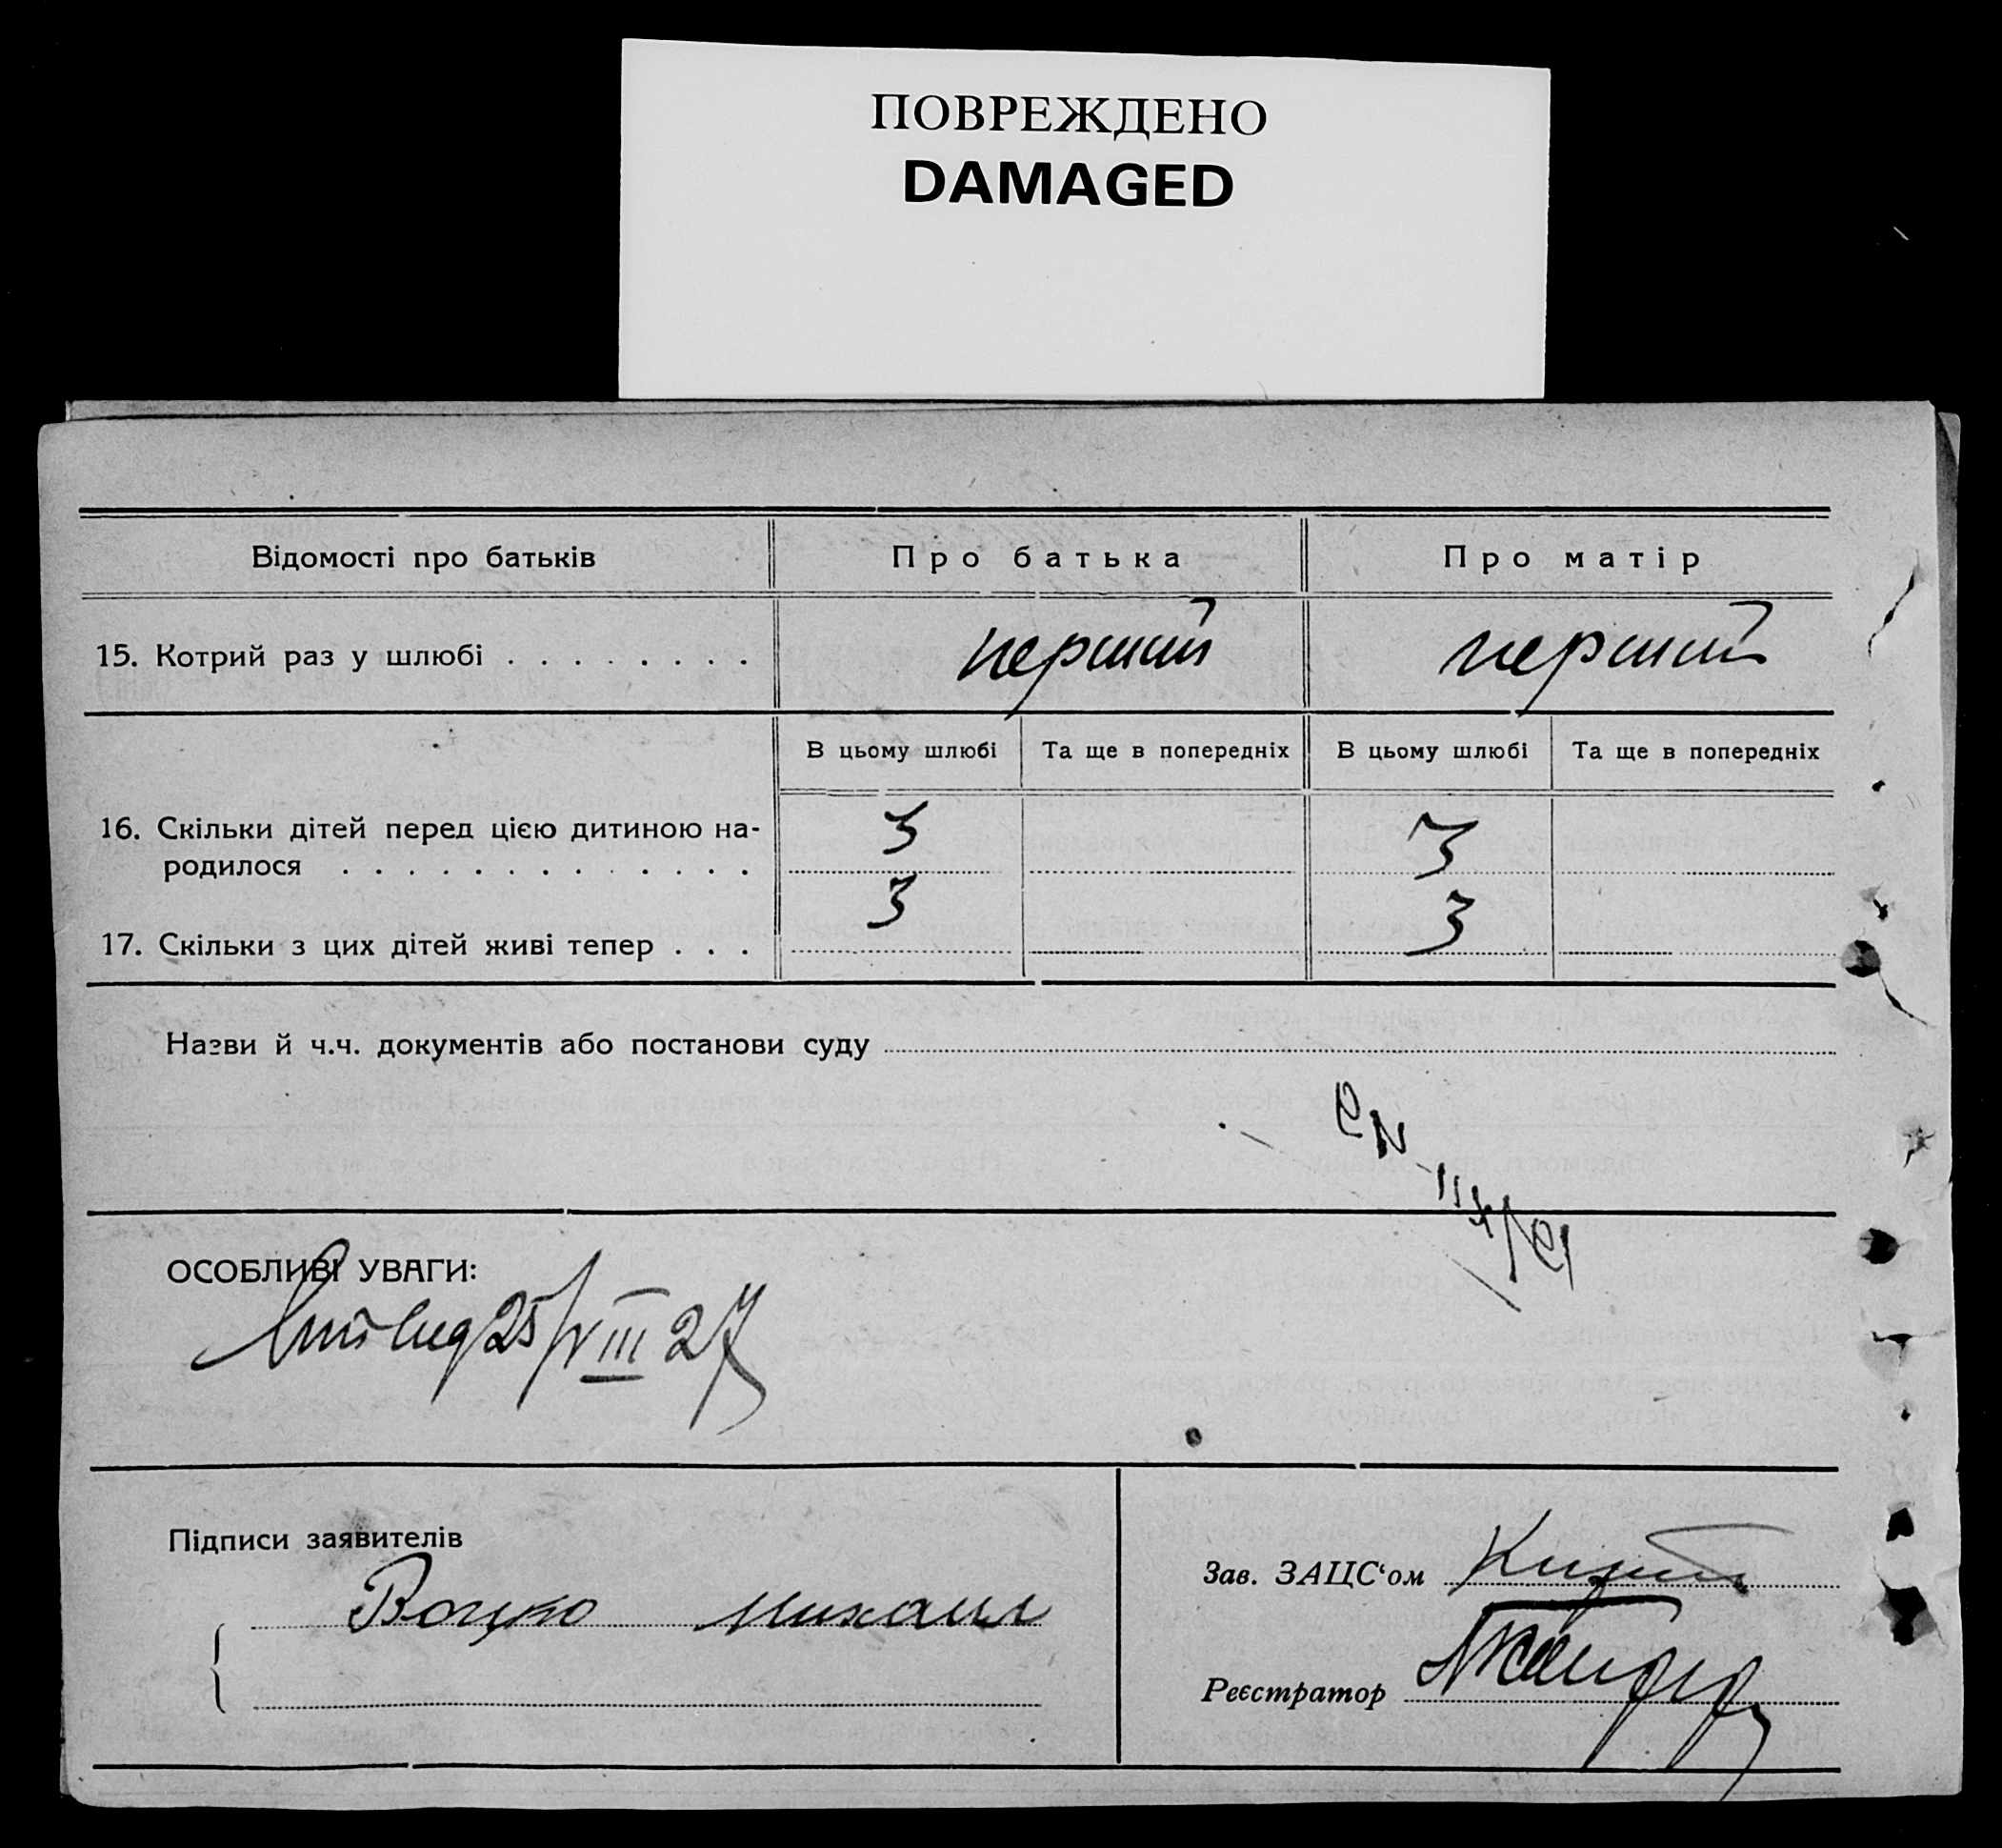 ПОВРЕЖДЕНО
DAMAGED
Відомості про батьків
Про батька
Про матір
15. Котрий раз у шлюбі . . . . . . . .
перший
перший
В цьому шлюбі
Та ще в попередніх
В цьому шлюбі
Та ще в попередніх
16. Скільки дітей перед цією дитиною на-
родилося . . . . . . . . . . . . .
3
3
17. Скільки з цих дітей живі тепер . . .
3
3
Назви й ч.ч. документів або постанови суду
ОСОБЛИВІ УВАГИ:
25/VIII 27
Підписи заявителів
Воцко Михаил
Зав. ЗАЦС‘ом
Реєстратор